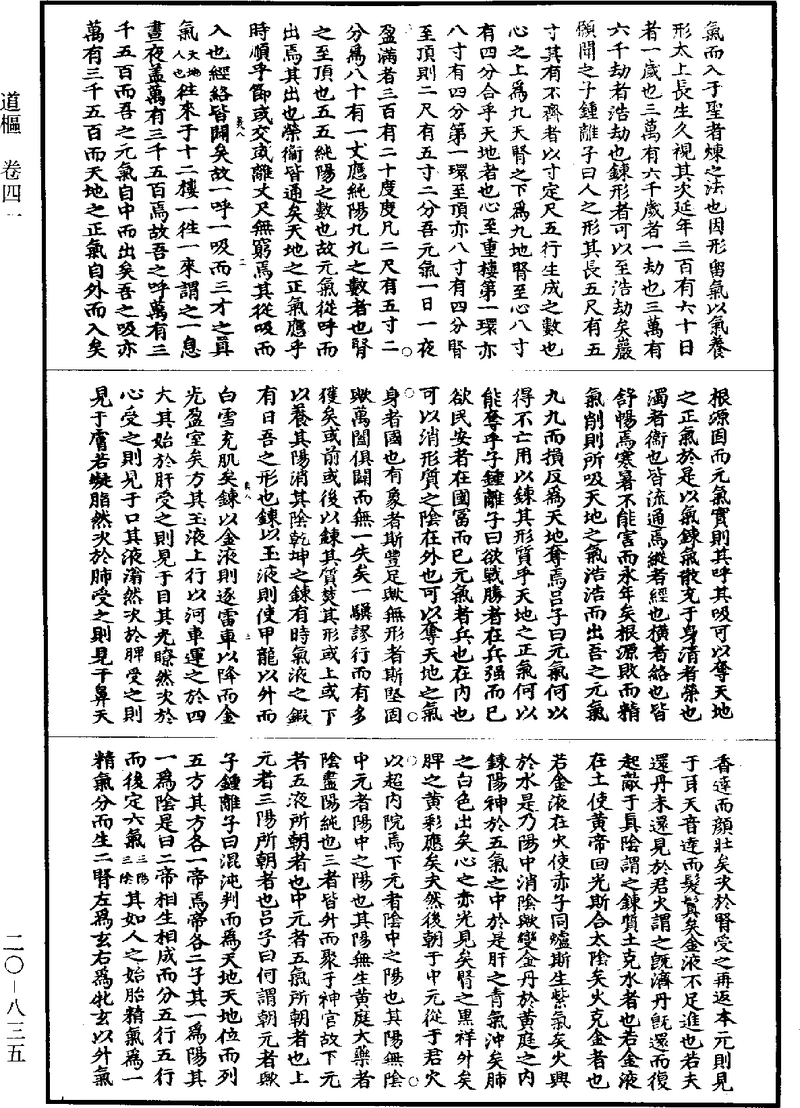 道樞 卷四一
二〇-八三五
氣而入于聖者煉之法也因形留氣以氣養
形太上長生久視其次延年三百有六十日
者一歲也三萬有六千歲者一劫也三萬有
六千劫者浩劫也鍊形者可以至浩劫矣嚴
願聞之子鍾離子曰人之形其長五尺有五
寸其有不齊者以寸定尺五行生成之數也
心之上爲九天腎之下爲九地腎至心八寸
有四分合乎天地者也心至重樓第一環亦
八寸有四分第一環至頂亦八寸有四分腎
至頂則二尺有五寸二分吾元氣一日一夜
盈滿者三百有二十度度凡二尺有五寸二
分爲八十有一丈應純陽九九之數者也腎
之至頂也五五純陽之數也故元氣從呼而
出焉其出也榮衞皆通矣天地之正氣應乎
時順乎節或交或離丈尺無窮焉其從吸而
入也經絡皆闢矣故一呼一吸而三才之眞
氣天地人也往來于十二樓一往一來謂之一息
晝夜蓋萬有三千五百焉故吾之呼萬有三
千五百而吾之元氣自中而出矣吾之吸亦
萬有三千五百而天地之正氣自外而入矣
根源固而元氣實則其呼其吸可以奪天地
之正氣於是以氣鍊氣散充于身清者榮也
濁者衞也皆流通焉縱者經也橫者絡也皆
舒暢焉寒暑不能害而永年矣根源敗而精
氣削則所吸天地之氣浩浩而出吾之元氣
九九而損反爲天地奪焉呂子曰元氣何以
得不亡用以鍊其形質乎天地之正氣何以
能奪乎子鍾離子曰欲戰勝者在兵强而已
欲民安者在國富而已元氣者兵也在內也
可以消形質之陰在外也可以奪天地之氣
身者國也有象者斯豐足歟無形者斯堅固
歟萬闔俱闢而無一失矣一驥謬行而有多
獲矣或前或後以鍊其質焚其形或上或下
以養其陽消其陰乾坤之鍊有時氣液之鍜
有日吾之形也鍊以玉液則使甲龍以外而
白雪充肌矣鍊以金液則逐雷車以降而金
光盈室矣方其玉液上行以河車運之於四
大其始於肝受之則見于目其光瞭然次於
心受之則見于口其液滃然次於脾受之則
見于膚若凝脂然次於肺受之則見于鼻天
香達而顏壯矣次於腎受之再返本元則見
于耳天音達而髮鬒矣金液不足進也若夫
還丹未還見於君火謂之旣濟丹旣還而復
起敵于眞陰謂之鍊質土克水者也若金液
在土使黃帝回光斯合太陰矣火克金者也
若金液在火使赤子同爐斯生紫氣矣火興
於水是乃陽中消陰歟變金丹於黃庭之內
鍊陽神於五氣之中於是肝之青氣沖矣肺
之白色出矣心之赤光見矣腎之黑祥外矣
脾之黃彩應矣夫然後朝于中元從于君火
以超內院焉下元者陰中之陽也其陽無陰
中元者陽中之陽也其陽無生黃庭大藥者
陰盡陽純也三者皆外而聚于神宮故下元
者五液所朝者也中元者五氣所朝者也上
元者三陽所朝者也呂子曰何謂朝元者歟
子鍾離子曰混沌判而爲天地天地位而列
五方其方各一帝焉帝各二子其一爲陽其
一爲陰是曰二帝相生相成而分五行五行
而後定六氣三陽三陰其如人之始胎精氣爲一
精氣分而生二腎左爲玄右爲牝玄以外氣